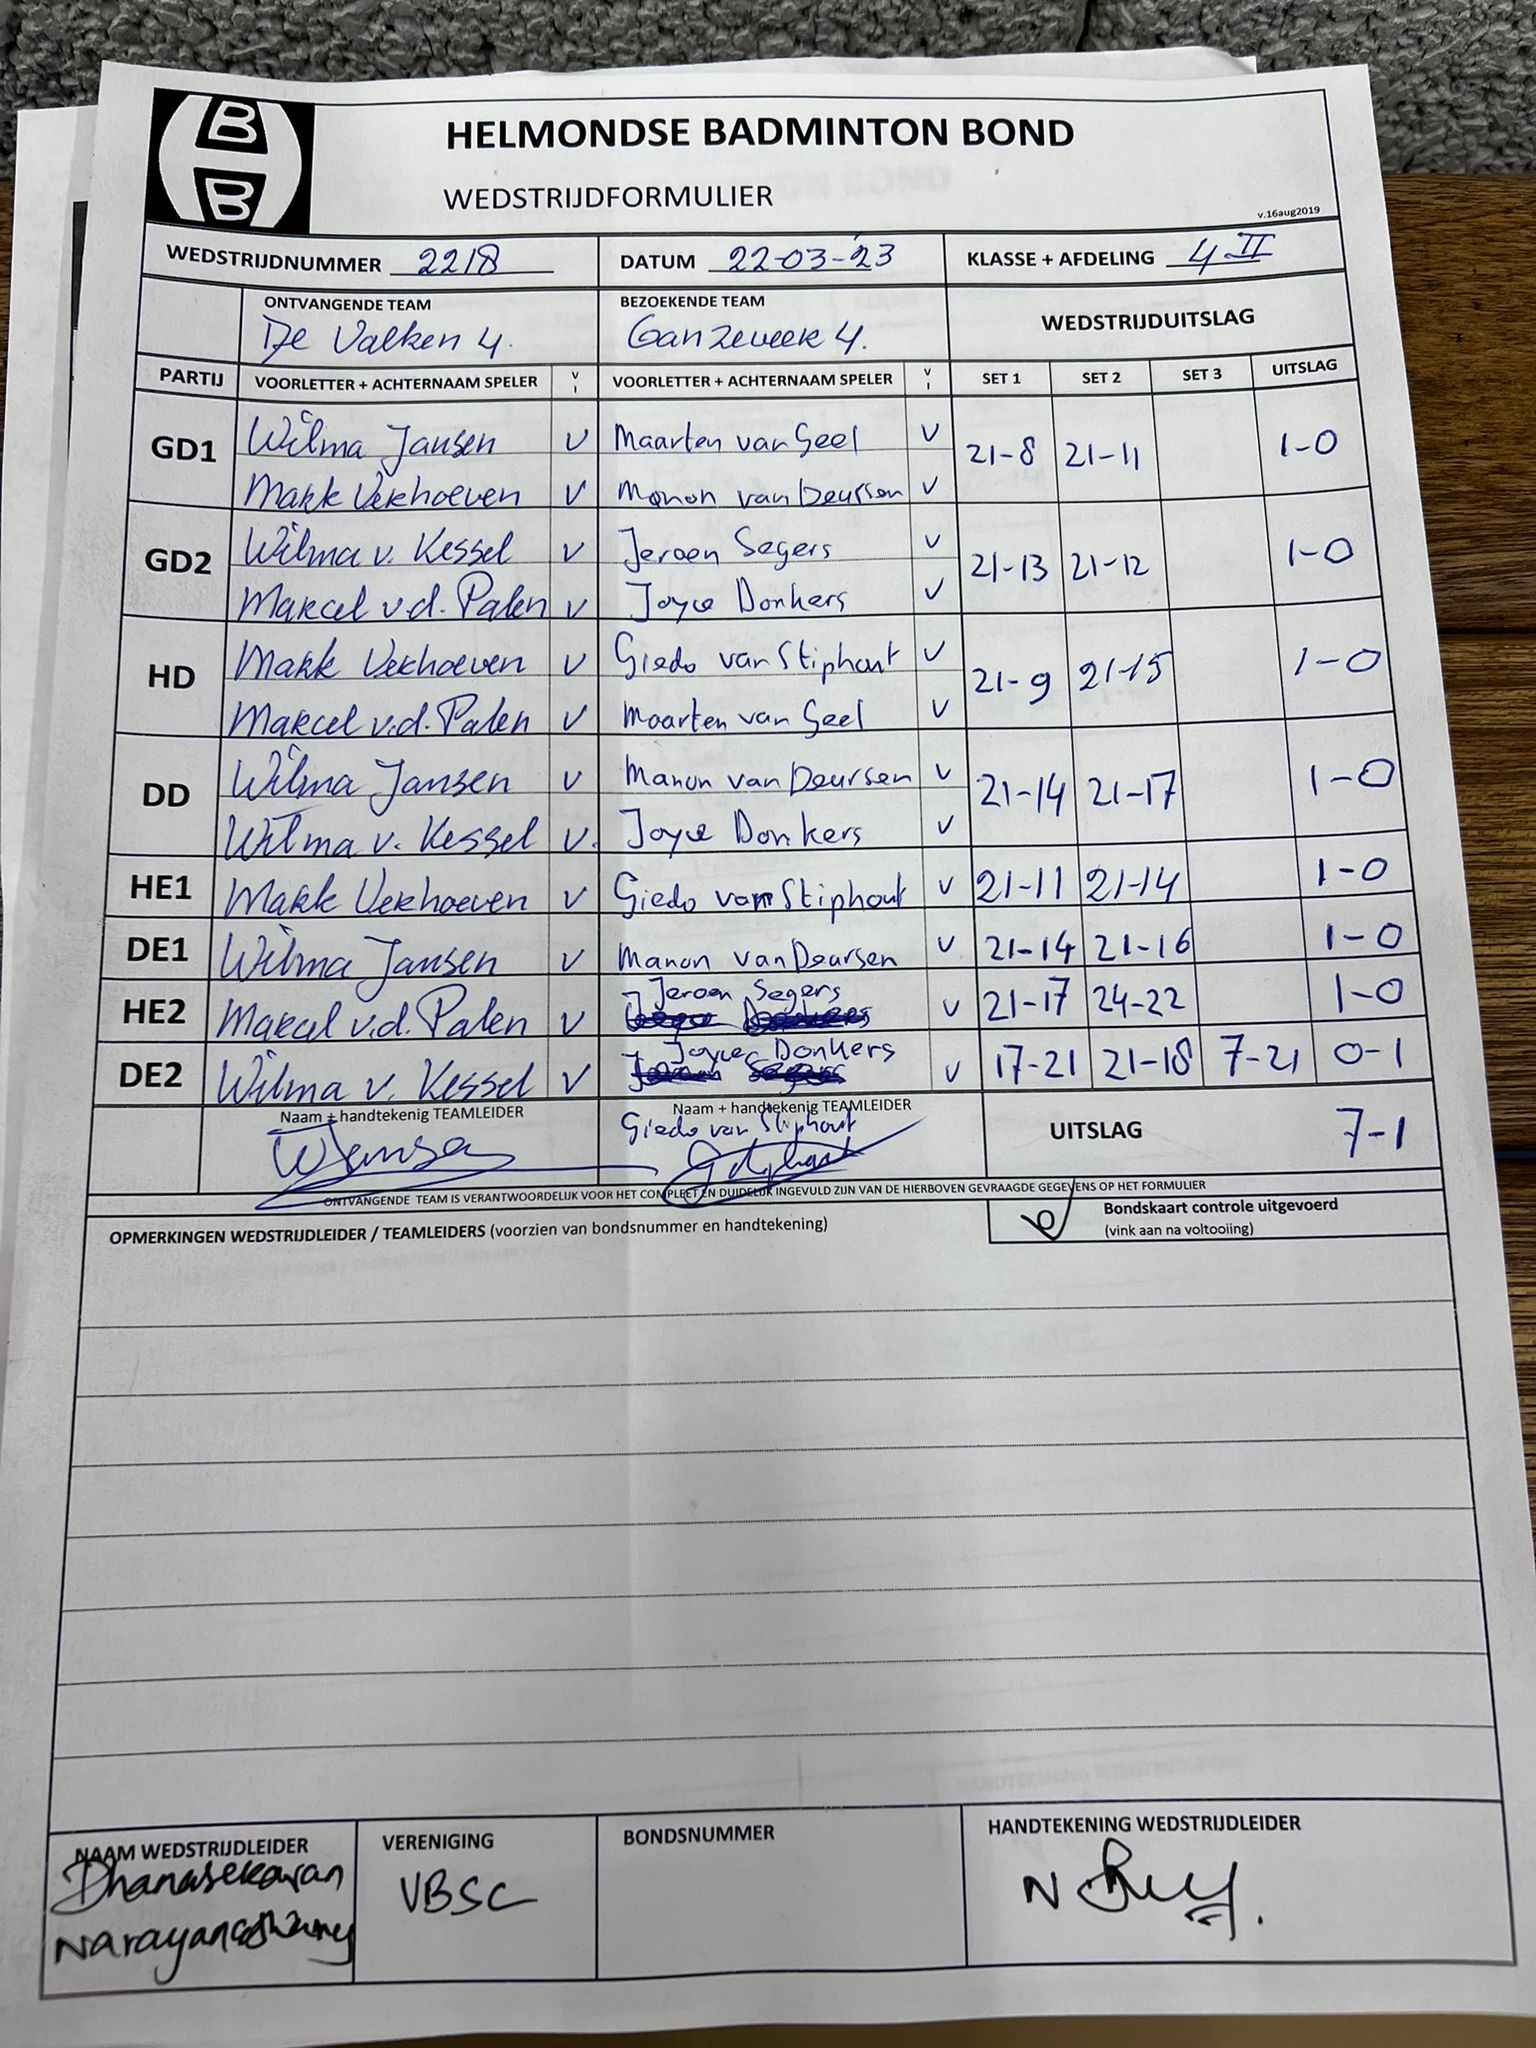 B
B
HELMONDSE BADMINTON BOND
WEDSTRIJDFORMULIER
v.16aug2019
WEDSTRIJDNUMMER 2218 DATUM 22-03-'23 KLASSE + AFDELING 4 II
ONTVANGENDE TEAM BEZOEKENDE TEAM WEDSTRIJDUITSLAG
De Valken 4. Ganzeveer 4.
PARTIJ VOORLETTER + ACHTERNAAM SPELER V I VOORLETTER + ACHTERNAAM SPELER V I SET 1 SET 2 SET 3 UITSLAG
GD1 Wilma Jansen V Maarten van Geel V 21-8 21-11 1-0
Mark Verhoeven V Manon van Deursen V
GD2 Wilma v. Kessel V Jeroen Segers V 21-13 21-12 1-0
Marcel v.d. Palen V Joyce Donkers V
HD Mark Verhoeven V Giedo van Stiphout V 21-9 21-15 1-0
Marcel v.d. Palen V Maarten van Geel V
DD Wilma Jansen V Manon van Deursen V 21-14 21-17 1-0
Wilma v. Kessel V. Joyce Donkers V
HE1 Mark Verhoeven V Giedo van Stiphout V 21-11 21-14 1-0
DE1 Wilma Jansen V Manon van Deursen V 21-14 21-16 1-0
HE2 Marcel v.d. Palen V Jeroen Segers V 21-17 24-22 1-0
DE2 Wilma v. Kessel V Joyce Donkers V 17-21 21-18 7-21 0-1
Naam + handtekenig TEAMLEIDER Naam + handtekenig TEAMLEIDER UITSLAG 7-1
WJansen Giedo van Stiphout
ONTVANGENDE TEAM IS VERANTWOORDELIJK VOOR HET COMPLEET EN DUIDELIJK INGEVULD ZIJN VAN DE HIERBOVEN GEVRAAGDE GEGEVENS OP HET FORMULIER
OPMERKINGEN WEDSTRIJDLEIDER / TEAMLEIDERS (voorzien van bondsnummer en handtekening) Bondskaart controle uitgevoerd
(vink aan na voltooiing)
NAAM WEDSTRIJDLEIDER VERENIGING BONDSNUMMER HANDTEKENING WEDSTRIJDLEIDER
Dhanasekaran VBSC